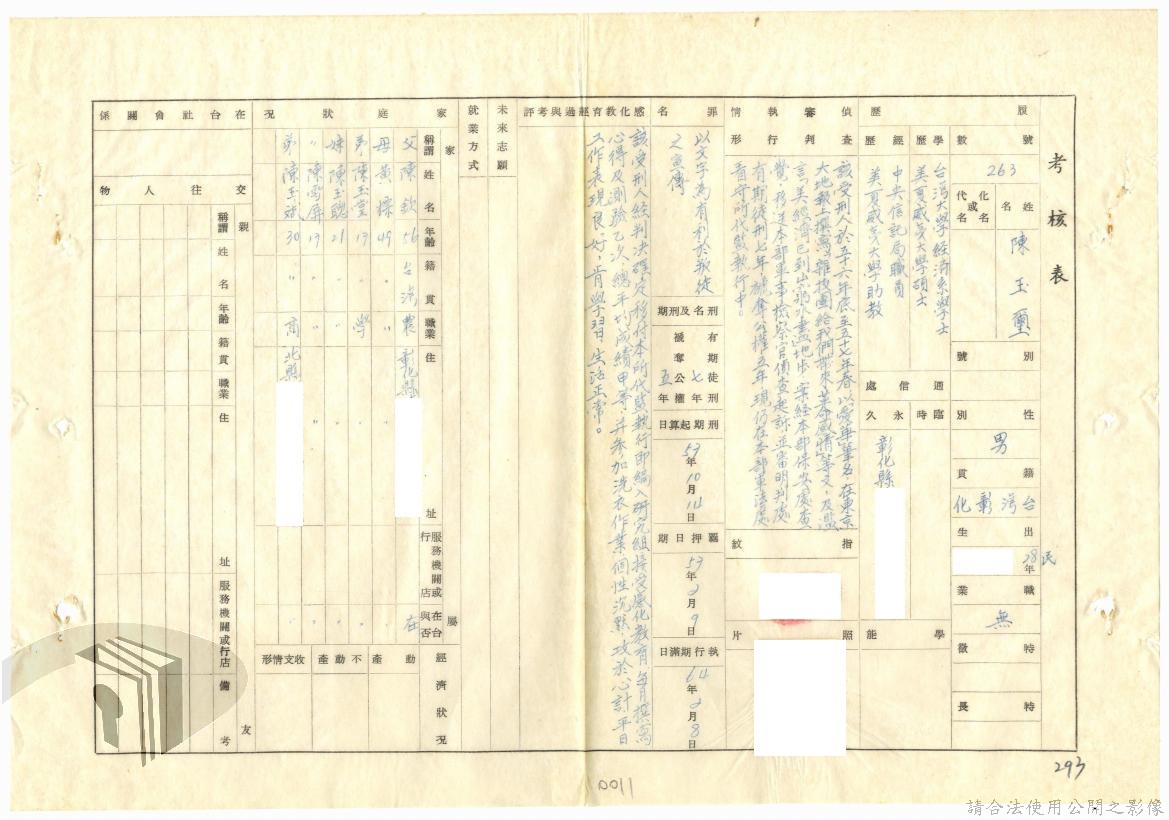 考核表
履歷
號數
263
姓名
陳玉璽
化名或代名
別號
性別
男
籍貫
台灣彰化
出生
民28年
職業
無
特徵
特長
學歷
台灣大學經濟系學士
美夏威夷大學碩士
經歷
中央信託局職員
美夏威夷大學助教
通信處
永久
彰化縣
臨時
學能
偵查審判執行情形
該受刑人於五十六年底至五十七年春以愛華筆名，在東京
大地報上撰寫「雜技團給我們帶來革命感情」等文，及濫
言美經濟已到山窮水盡地步，案經本部保安處查
覺，移送本部軍事檢察官偵查起訴並審明判處
有期徒刑七年褫奪公權五年，現仍在本部軍法處
看守所代監執行中。
指紋
照片
罪名
以文字為有利於叛徒
之宣傳
刑名及刑期
有期徒刑七年
褫奪公權五年
刑期起算日
57年10月14日
羈押日期
57年2月9日
執行期滿日
64年2月8日
感化教育經過與考評
該受刑人經判決確定移付本所代監執行即編入研究組接受感化教育，每月撰寫
心得及測驗乙次，總平均成績甲等，並參加洗衣作業，個性沉默，攻於心計，平日
工作表現良好，肯學習，生活正常。
未來志願
就業方式
家庭狀況
家屬
稱謂 姓名 年齡 籍貫 職業 住址 服務機關或行店 在台與否
父 陳欽 56 台灣 農 彰化縣 在
母 黃樑 49 〃 〃 〃 〃
弟 陳玉堂 17 〃 學 〃 〃
妹 陳玉聰 21 〃 〃 〃 〃
〃 陳雪屏 17 〃 〃 〃 〃
弟 陳玉斌 30 〃 商 北縣 〃
經濟狀況
動產
不動產
收支情形
在台社會關係
交往人物
親友
稱謂 姓名 年齡 籍貫 職業 住址 服務機關或行店 備考
293
0011
請合法使用公開之影像